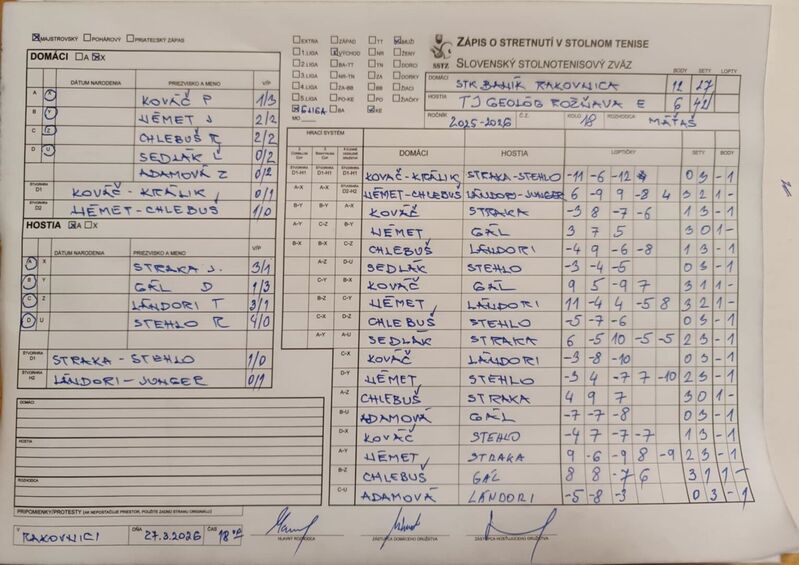 MAJSTROVSKÝ POHÁROVÝ PRIATEĽSKÝ ZÁPAS
DOMÁCI A X
DÁTUM NARODENIA PRIEZVISKO A MENO V/P
A X KOVÁČ P 1/3
B Y NÉMET J 2/2
C Z CHLEBUŠ R 2/2
D U SEDLÁK Ľ 0/2
ADAMOVÁ Z 0/2
ŠTVORHRA D1 KOVÁČ - KRÁLIK 0/1
ŠTVORHRA D2 NÉMET - CHLEBUŠ 1/0
HOSTIA A X
DÁTUM NARODENIA PRIEZVISKO A MENO V/P
A X STRAKA J. 3/1
B Y GÁL D 1/3
C Z LÁNDORI T 3/1
D U STEHLO R 4/0
ŠTVORHRA D1 STRAKA - STEHLO 1/0
ŠTVORHRA H2 LÁNDORI - JUNGER 0/1
DOMÁCI
HOSTIA
ROZHODCA
PRIPOMIENKY/PROTESTY (AK NEPOSTAČUJE PRIESTOR, POUŽITE ZADNÚ STRANU ORIGINÁLU)
V RAKOVNICI DŇA 27.3.2026 ČAS 18 00
HLAVNÝ ROZHODCA ZÁSTUPCA DOMÁCEHO DRUŽSTVA ZÁSTUPCA HOSŤUJÚCEHO DRUŽSTVA
EXTRA ZÁPAD TT MUŽI
1.LIGA VÝCHOD NR ŽENY
2.LIGA BA-TT TN DORCI
3.LIGA NR-TN ZA DORKY
4.LIGA ZA-BB BB ŽIACI
5.LIGA PO-KE PO ŽIAČKY
6.LIGA BA KE
MO
SSTZ
ZÁPIS O STRETNUTÍ V STOLNOM TENISE
SLOVENSKÝ STOLNOTENISOVÝ ZVÄZ
BODY SETY LOPTY
DOMÁCI STK BANÍK RAKOVNICA 12 27
HOSTIA TJ GEOLÓG ROŽŇAVA E 6 42
ROČNÍK 2025-2026 Č.Z. KOLO 18 ROZHODCA MÁTÁŠ
HRACÍ SYSTÉM DOMÁCI HOSTIA LOPTIČKY SETY BODY
KOVÁČ-KRÁLIK STRAKA-STEHLO -11 -6 -12 0 3 - 1
NÉMET-CHLEBUŠ LÁNDORI-JUNGER 6 -9 9 -8 4 3 2 1 -
B-Y B-Y A-X KOVÁČ STRAKA -3 8 -7 -6 1 3 - 1
A-Y C-Z B-Y NÉMET GÁL 3 7 5 3 0 1 -
B-X B-X C-Z CHLEBUŠ LÁNDORI -4 9 -6 -8 1 3 - 1
A-Z D-U SEDLÁK STEHLO -3 -4 -5 0 3 - 1
C-Y B-X KOVÁČ GÁL 9 5 -9 7 3 1 1 -
B-Z C-Y NÉMET LÁNDORI 11 -4 4 -5 8 3 2 1 -
C-X D-Z CHLEBUŠ STEHLO -5 -7 -6 0 3 - 1
A-Y A-U SEDLÁK STRAKA 6 -5 10 -5 -5 2 3 - 1
C-X KOVÁČ LÁNDORI -3 -8 -10 0 3 - 1
D-Y NÉMET STEHLO -3 4 -7 7 -10 2 3 - 1
A-Z CHLEBUŠ STRAKA 4 9 7 3 0 1 -
B-U ADAMOVÁ GÁL -7 -7 -8 0 3 - 1
D-X KOVÁČ STEHLO -4 7 -7 -7 1 3 - 1
A-Y NÉMET STRAKA 9 -6 -9 8 -9 2 3 - 1
B-Z CHLEBUŠ GÁL 8 8 -7 6 3 1 1 -
C-U ADAMOVÁ LÁNDORI -5 -8 -3 0 3 - 1